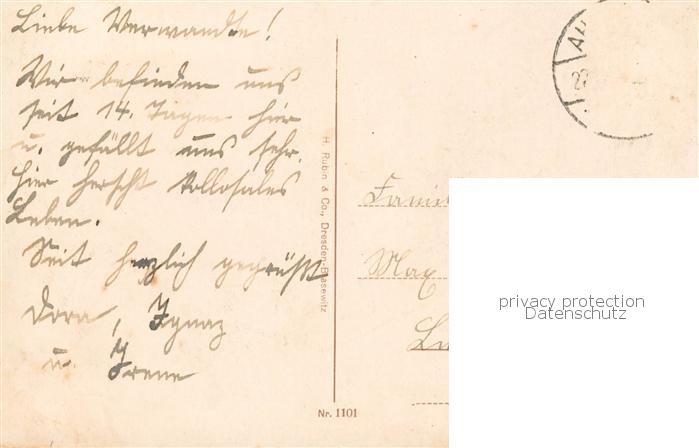 Liebe Verwandte!
Wir befinden uns
seit 14. Tagen hier
u. gefällt uns sehr.
hier herscht kollosales
Leben.
Seit herzlich gegrüßt
Dora, Ignaz
u. Irene
H. Rubin & Co., Dresden-Blasewitz
Nr. 1101
Max
privacy protection
Datenschutz